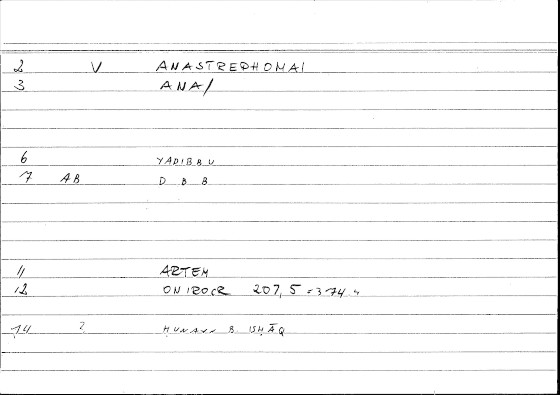 2 V ANASTREPHOMAI
3 ANA/
6 YADIBBU
7 AB D B B
11 ARTEM
12 ONIROCR 207, 5 = 374
14 ? ḤUNAYN B. ISḤĀQ